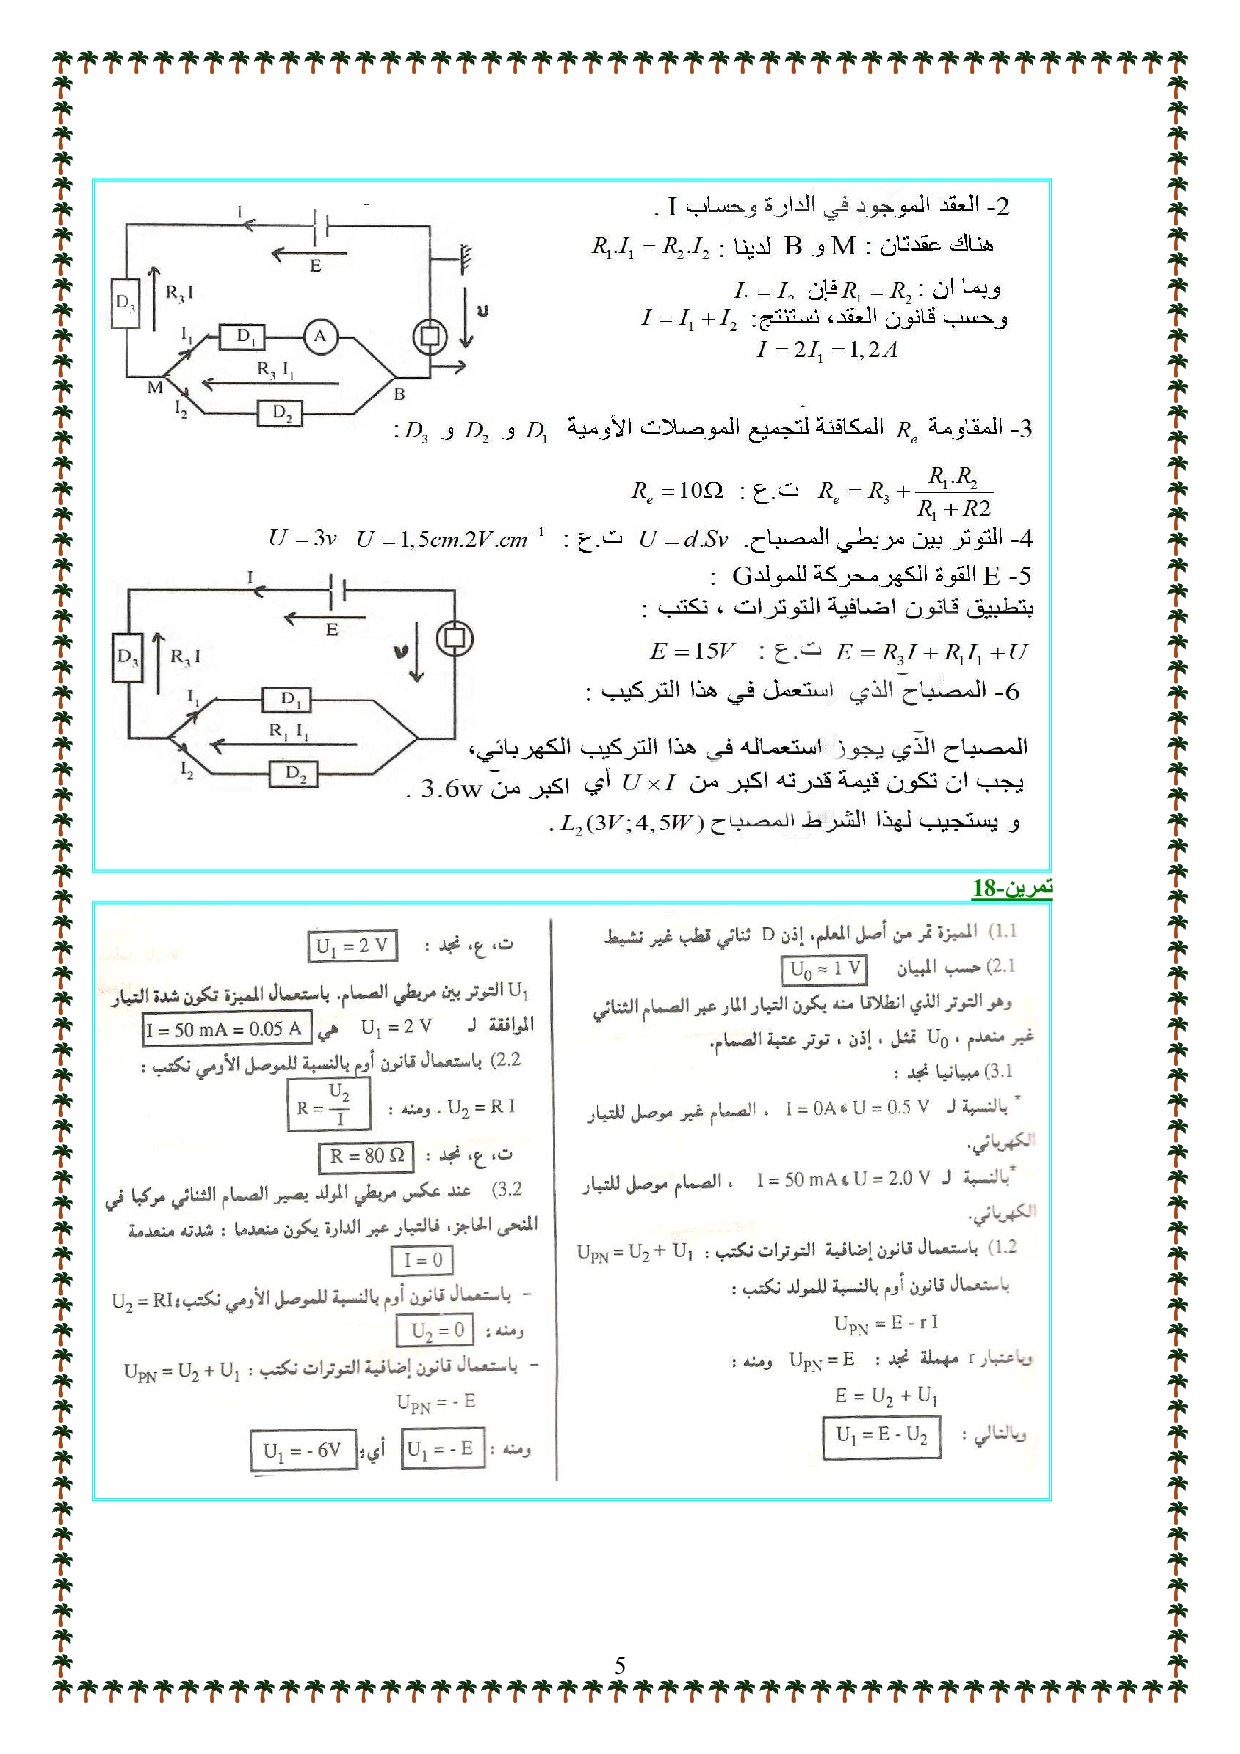 2- العقد الموجود في الدارة وحساب I .
هناك عقدتان : M و B لدينا : R₁.I₁ = R₂.I₂
وبما ان : R₁ = R₂ فإن I₁ = I₂
وحسب قانون العقد، نستنتج: I = I₁ + I₂
I = 2I₁ = 1,2A
I
E
D₃
R₃ I
I₁
D₁
A
U
R₃ I₁
M
B
I₂
D₂
3- المقاومة Rₑ المكافئة لتجميع الموصلات الأومية D₁ و D₂ و D₃ :
Rₑ = R₃ + R₁.R₂ / R₁ + R2 ت.ع : Rₑ = 10Ω
4- التوتر بين مربطي المصباح. U = d.Sv ت.ع : U = 1,5cm.2V.cm⁻¹ U = 3v
5- E القوة الكهرمحركة للمولدG :
بتطبيق قانون اضافية التوترات ، نكتب :
E = R₃I + R₁I₁ + U ت.ع : E = 15V
6- المصباح الذي استعمل في هذا التركيب :
المصباح الذي يجوز استعماله في هذا التركيب الكهربائي،
يجب ان تكون قيمة قدرته اكبر من U × I أي اكبر من 3.6w .
و يستجيب لهذا الشرط المصباح L₂(3V;4,5W) .
I
E
D₃
R₃ I
U
I₁
D₁
R₁ I₁
I₂
D₂
تمرين-18
1.1) المميزة تمر من أصل المعلم، إذن D ثنائي قطب غير نشيط
2.1) حسب المبيان U₀ ≈ 1 V
وهو التوتر الذي انطلاقا منه يكون التيار المار عبر الصمام الثنائي
غير منعدم ، U₀ تمثل ، إذن ، توتر عتبة الصمام.
3.1) مبيانيا نجد :
* بالنسبة لـ U = 0.5 V ، I = 0A ، الصمام غير موصل للتيار
الكهربائي.
* بالنسبة لـ U = 2.0 V ، I = 50 mA ، الصمام موصل للتيار
الكهربائي.
1.2) باستعمال قانون إضافية التوترات نكتب : U_PN = U₂ + U₁
باستعمال قانون أوم بالنسبة للمولد نكتب :
U_PN = E - r I
وباعتبار r مهملة نجد : U_PN = E ومنه :
E = U₂ + U₁
وبالتالي : U₁ = E - U₂
ت، ع، نجد : U₁ = 2 V
U₁ التوتر بين مربطي الصمام. باستعمال المميزة تكون شدة التيار
الموافقة لـ U₁ = 2 V هي I = 50 mA = 0.05 A
2.2) باستعمال قانون أوم بالنسبة للموصل الأومي نكتب :
U₂ = R I . ومنه : R = U₂ / I
ت، ع، نجد : R = 80 Ω
3.2) عند عكس مربطي المولد يصير الصمام الثنائي مركبا في
المنحى الحاجز، فالتيار عبر الدارة يكون منعدما : شدته منعدمة
I = 0
- باستعمال قانون أوم بالنسبة للموصل الأومي نكتب : U₂ = RI
ومنه : U₂ = 0
- باستعمال قانون إضافية التوترات نكتب : U_PN = U₂ + U₁
U_PN = - E
ومنه : U₁ = - E أي : U₁ = - 6V
5